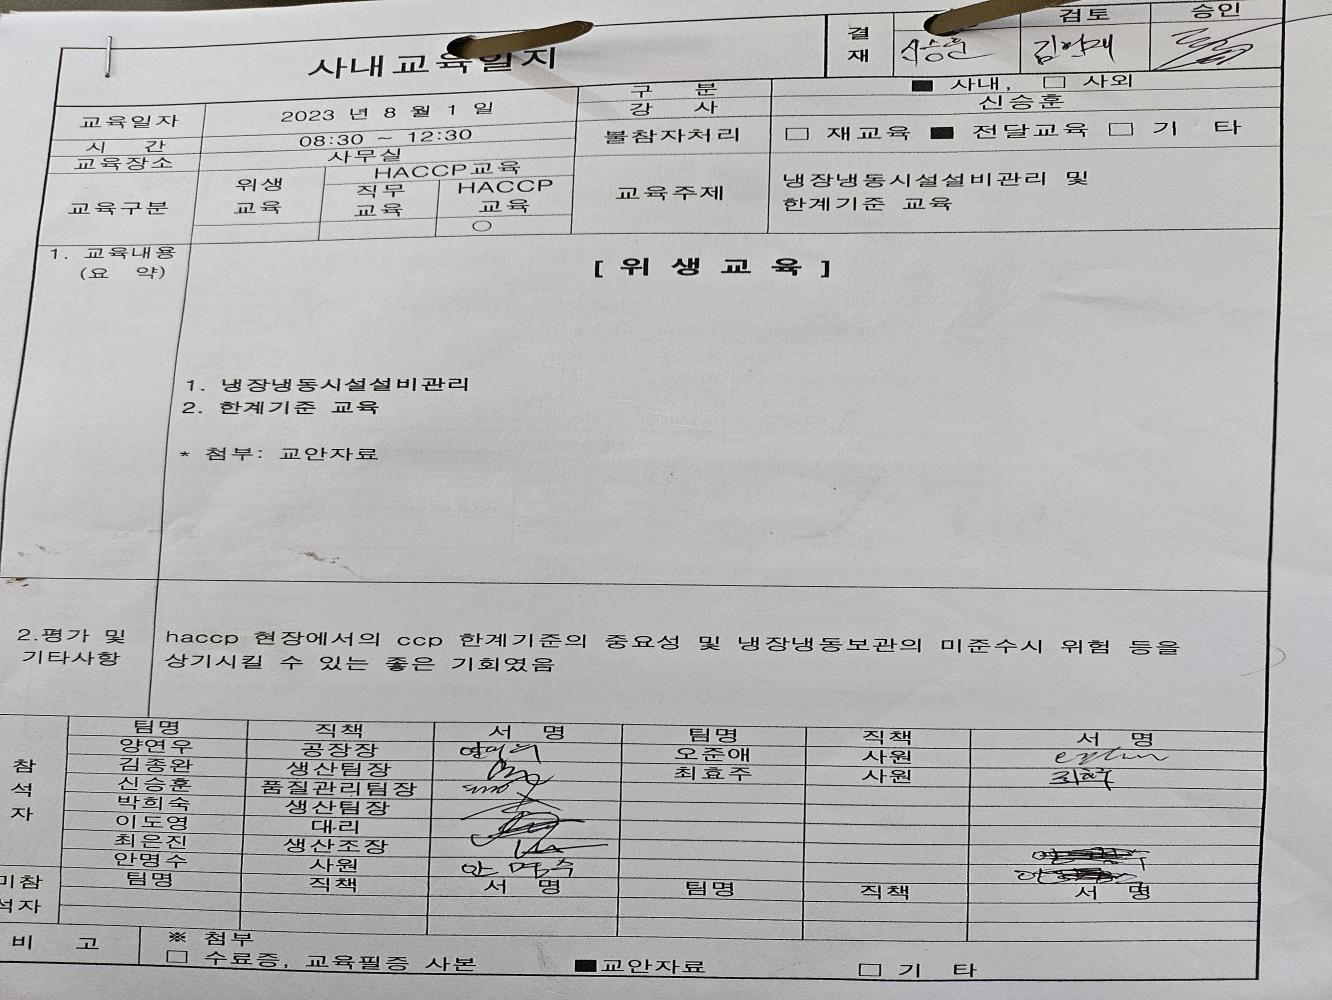 사내교육일지
결 재 검토 승인
신승훈 김학재
구 분 ■ 사내, □ 사외
교육일자 2023 년 8 월 1 일 강 사 신승훈
시 간 08:30 ~ 12:30 불참자처리 □ 재교육 ■ 전달교육 □ 기 타
교육장소 사무실
교육구분 위생 교육 HACCP교육
직무 교육 HACCP 교육
○
교육주제 냉장냉동시설설비관리 및
한계기준 교육
1. 교육내용
(요 약)
[ 위 생 교 육 ]
1. 냉장냉동시설설비관리
2. 한계기준 교육
* 첨부: 교안자료
2.평가 및
기타사항
haccp 현장에서의 ccp 한계기준의 중요성 및 냉장냉동보관의 미준수시 위험 등을
상기시킬 수 있는 좋은 기회였음
참 석 자
팀명 직책 서 명 팀명 직책 서 명
양연우 공장장 오준애 사원
김종완 생산팀장 최효주 사원 최효주
신승훈 품질관리팀장
박희숙 생산팀장
이도영 대리
최은진 생산조장
안명수 사원 안명수
미참 석자 팀명 직책 서 명 팀명 직책 서 명
비 고 ※ 첨부
□ 수료증, 교육필증 사본 ■교안자료 □ 기 타